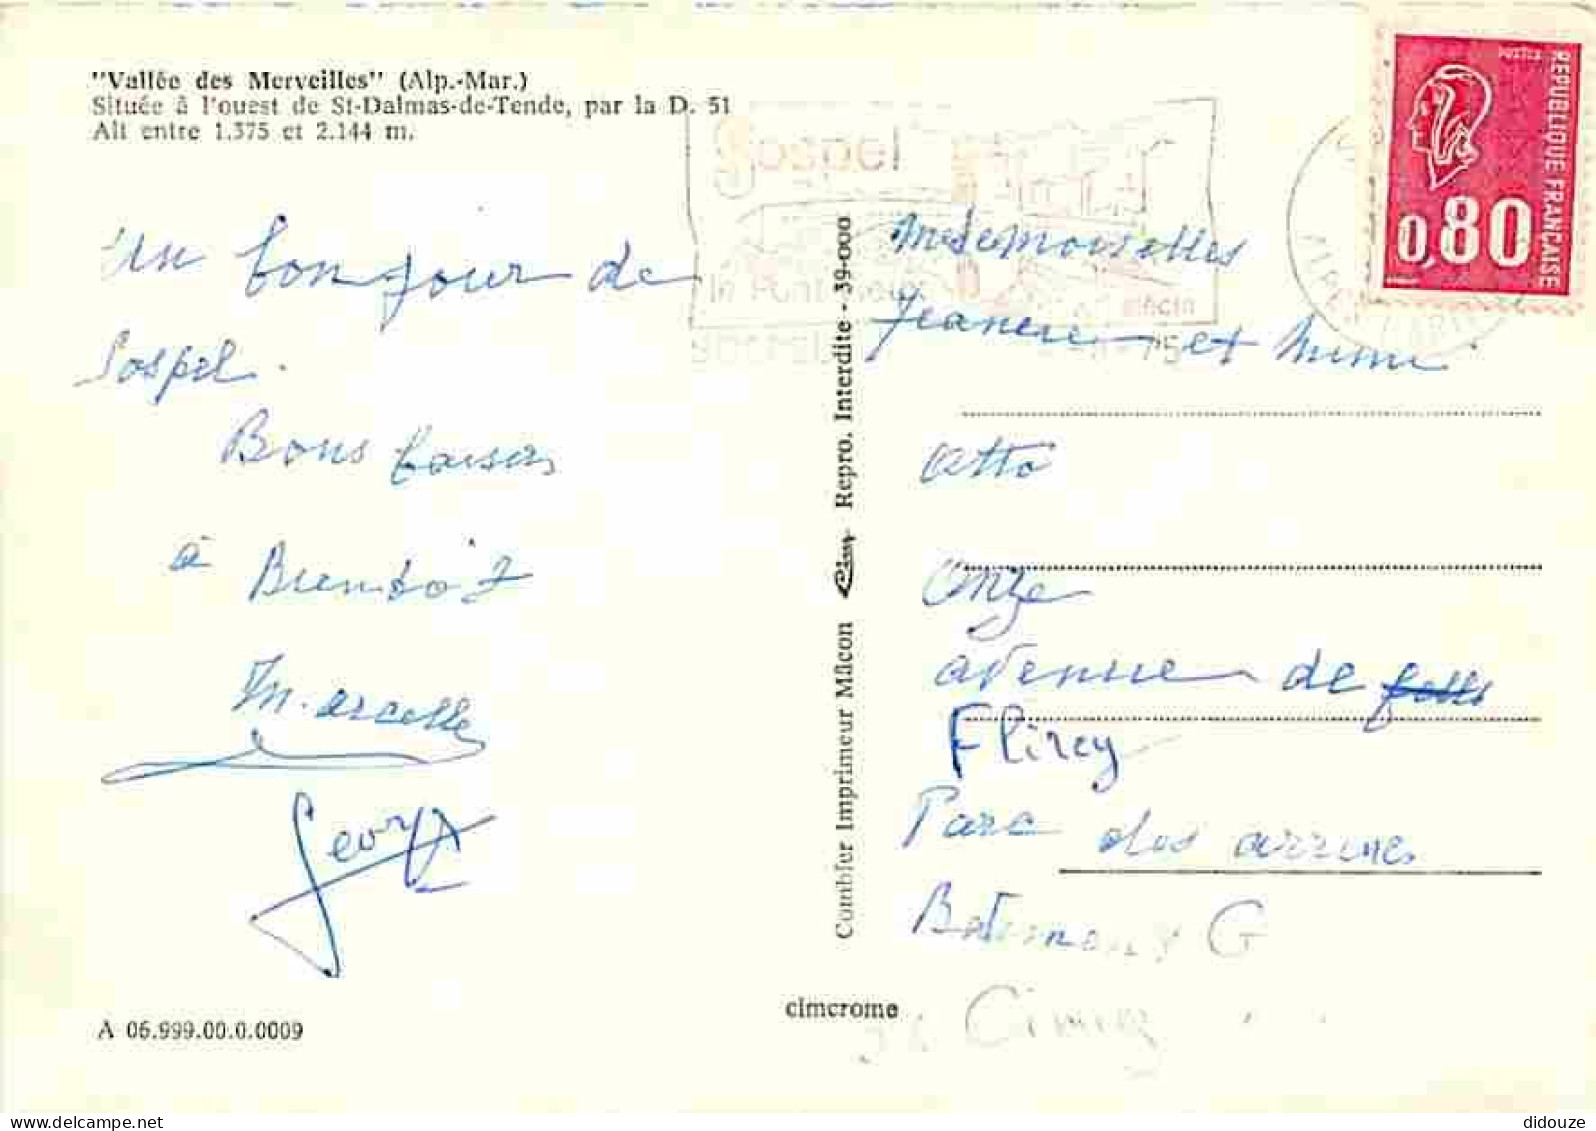 "Vallée des Merveilles" (Alp.-Mar.)
Située à l'ouest de St-Dalmas-de-Tende, par la D. 51
Alt entre 1.375 et 2.144 m.
Un bonjour de
Sospel.
Bons baisers
à Bientôt
Marcelle
A 06.999.00.0.0009
Combier Imprimeur Mâcon Cim Repro. Interdite - 39-000
cimcrome
Sospel
le Pont
siècle
75
REPUBLIQUE FRANÇAISE
POSTES
0,80
Mademoiselles
et Mimi
Otto
Onze
avenue de
Flirey
Parc des arènes
Batiment G
Cimiez
didouze